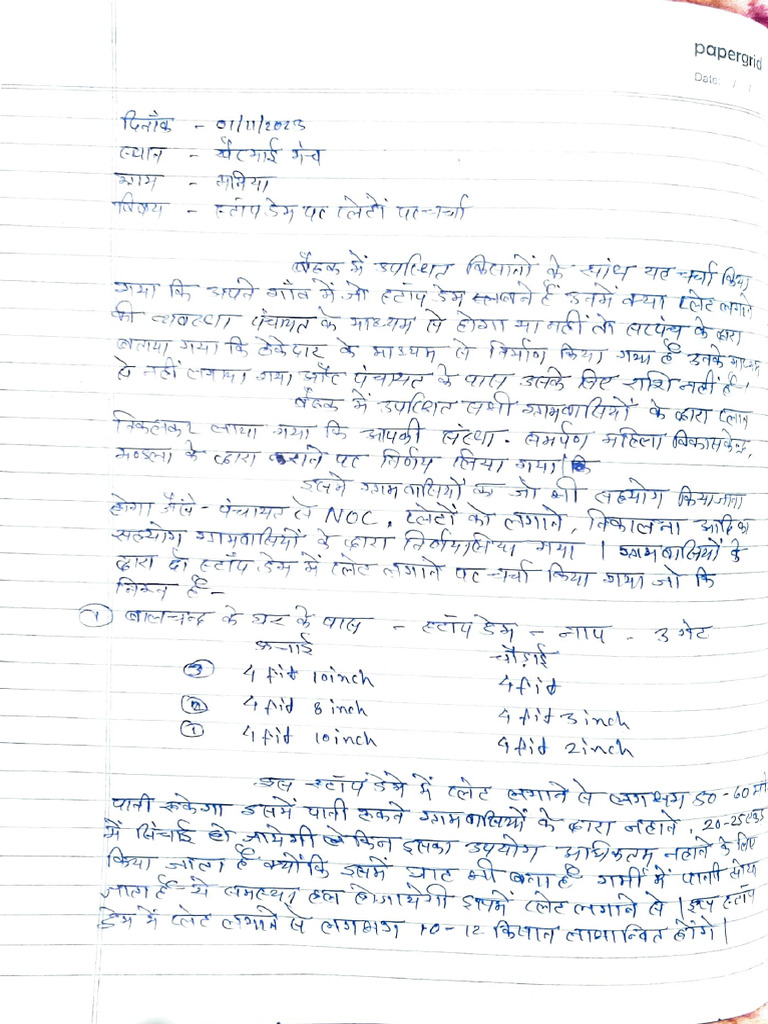 papergrid
Date: / /
दिनाँक - 01/11/2023
स्थान - खैरमाई मंच
ग्राम - मनिया
विषय - स्टॉप डेम पर प्लेटों पर चर्चा
बैठक में उपस्थित किसानों के साथ यह चर्चा किया
गया कि अपने गाँव में जो स्टॉप डेम बने हैं उनमें क्या प्लेट लगाने
की व्यवस्था पंचायत के माध्यम से होगा या नहीं तो सरपंच के द्वारा
बताया गया कि ठेकेदार के माध्यम से निर्माण किया गया है उनके माध्यम
से नहीं लगाया गया और पंचायत के पास उसके लिए राशि नहीं है।
बैठक में उपस्थित सभी ग्रामवासियों के द्वारा प्लान
निकलकर लाया गया कि आपकी संस्था - समर्पण महिला विकास केन्द्र,
मण्डला के द्वारा कराने पर निर्णय लिया गया। कि
इसमें ग्रामवासियों का जो भी सहयोग किया जाना
होगा जैसे - पंचायत से NOC, प्लेटों को लगाने, निकालना आदि का
सहयोग ग्रामवासियों के द्वारा निर्णय लिया गया। ग्रामवासियों के
द्वारा दो स्टॉप डेम में प्लेट लगाने पर चर्चा किया गया जो कि
निम्न है -
① बालचन्द के घर के पास - स्टॉप डेम - नाप - 3 गेट
ऊचाई चौड़ाई
③ 4 fit 10 inch 4 fit
② 4 fit 8 inch 4 fit 3 inch
① 4 fit 10 inch 4 fit 2 inch
इस स्टॉप डेम में प्लेट लगाने से लगभग 50-60 मी
पानी रुकेगा इसमें पानी रुकने ग्रामवासियों के द्वारा नहाने, 20-25 एकड़
में सिंचाई हो जायेगी लेकिन इसका उपयोग अधिकतम नहाने के लिए
किया जाता है क्योंकि इसमें घाट भी बना है गर्मी में पानी
जाता है ये समस्या हल हो जायेगी इसमें प्लेट लगाने से। इस स्टॉप
डेम में प्लेट लगाने से लगभग 10-12 किसान लाभान्वित होंगे।